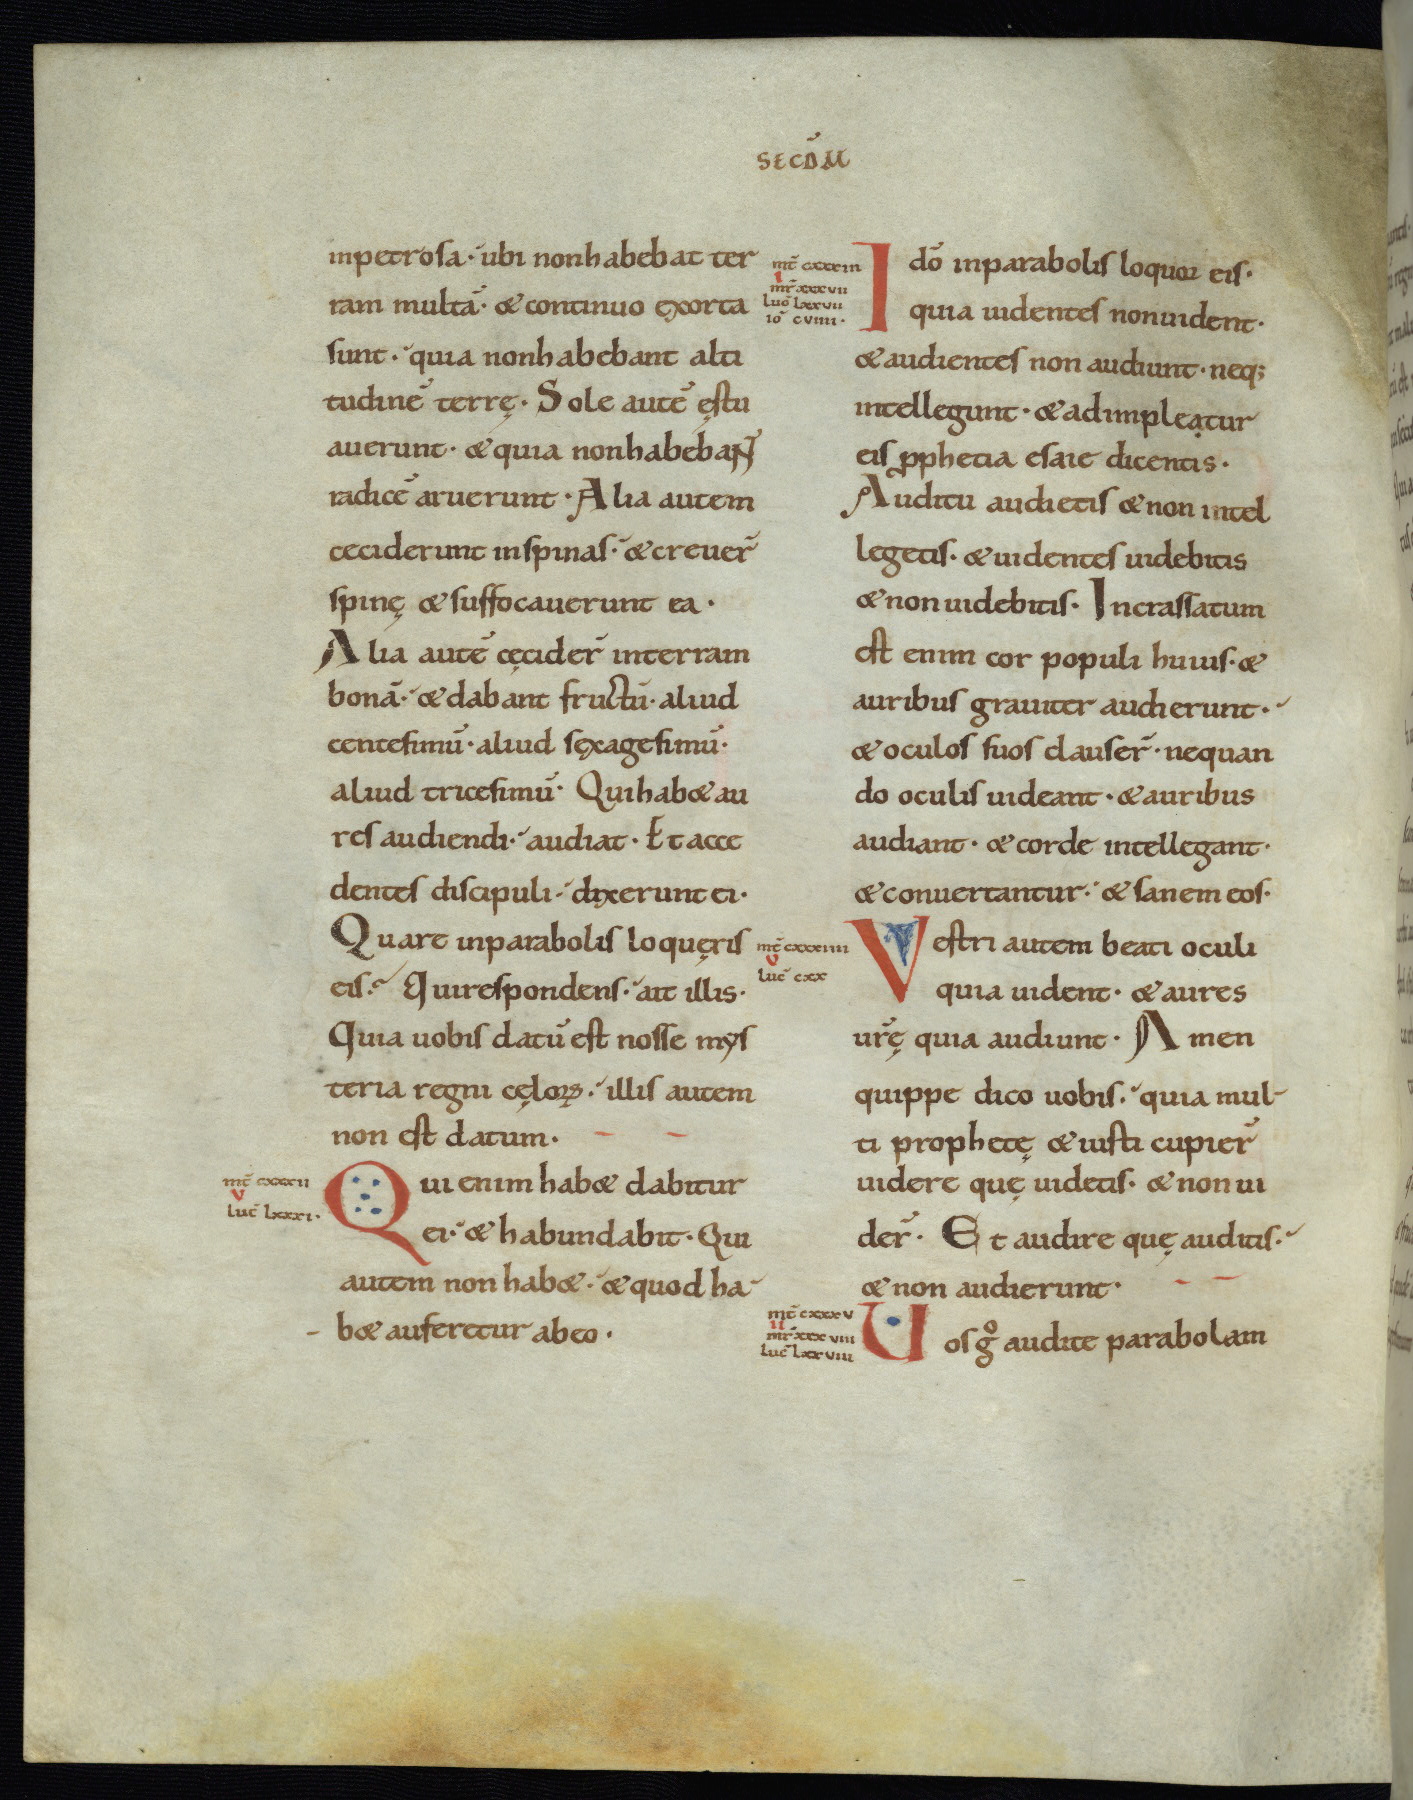 SECDM̄
inpetrosa· ubi nonhabebat ter
ram multā· & continuo exorta
sunt· quia nonhabebant alti
tudinē terrę· Sole autē ęstu
auerunt· & quia nonhabebaNT
radicē aruerunt· Alia autem
ceciderunt inspinas· & creuer̄
spinę & suffocauerunt ea·
Alia autē cęcider̄ interram
bonā· & dabant fructū· aliud
centesimū· aliud sexagesimū·
aliud tricesimū· Quihab& au
res audiendi· audiat· Et acce
dentes discipuli· dixerunt ei·
Quare inparabolis loquęris
eis· Quirespondens· ait illis·
Quia uobis datū est nosse mys
teria regni cęloꝝ· illis autem
non est datum·
mt̄ cxxxii
v
luc̄ lxxxi·
Qui enim hab& dabitur
ei· & habundabit· Qui
autem non hab&· & quod ha-
b& auferetur abeo·
mt̄ cxxxiii
i
mr̄ xxxvii
luc̄ lxxvii
io̅ cviiii·
Idō inparabolis loquor eis·
quia uidentes nonuident·
& audientes non audiunt· neq;
intellegunt· & adimpleatur
eis ꝓphetia esaie dicentis·
Auditu audietis & non intel
legetis· & uidentes uidebitis
& non uidebitis· Incrassatum
est enim cor populi huius· &
auribus grauiter audierunt·
& oculos suos clauser̄· nequan
do oculis uideant· & auribus
audiant· & corde intellegant·
& conuertantur· & sanem eos·
mt̄ cxxxiiii
v
luc̄ cxx
Vestri autem beati oculi
quia uident· & aures
ur̄ę quia audiunt· Amen
quippe dico uobis· quia mul-
ti prophetę & iusti cupier̄
uidere quę uidetis· & non ui
der̄· Et audire quę auditis·
& non audierunt·
mt̄ cxxxv
ii
mr̄ xxxviii
luc̄ lxxviii
Uos gͦ audite parabolam